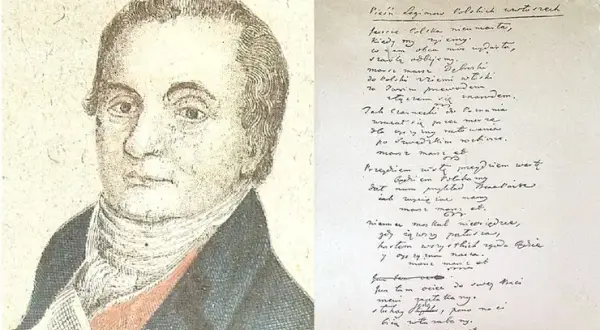 Pieśń Legionów Polskich we Włoszech
Jeszcze Polska nie umarła,
kiedy my żyjemy.
co nam obca moc wydarła,
szablą odbijemy.
marsz marsz Dąbrowski
do Polski z ziemi włoski
za Twoim przewodem
złączem się z narodem.
Jak Czarnecki do Poznania
wracał się przez morze
dla ojczyzny ratowania
po szwedzkim rozbiorze.
marsz marsz et
Przejdziem Wisłę przejdziem Wartę
będziem Polakamy
dał nam przykład Bonaparte
jak zwyciężać mamy
marsz marsz et.
niemiec moskal nieosiędzie,
gdy jąwszy pałasza,
hasłem wszystkich zgoda będzie
y ojczyzna nasza.
marsz marsz et
Już tam
Już tam ociec do swej Basi
mówi zapłakany
słuchaj, pono nasi
biją w tarabany.